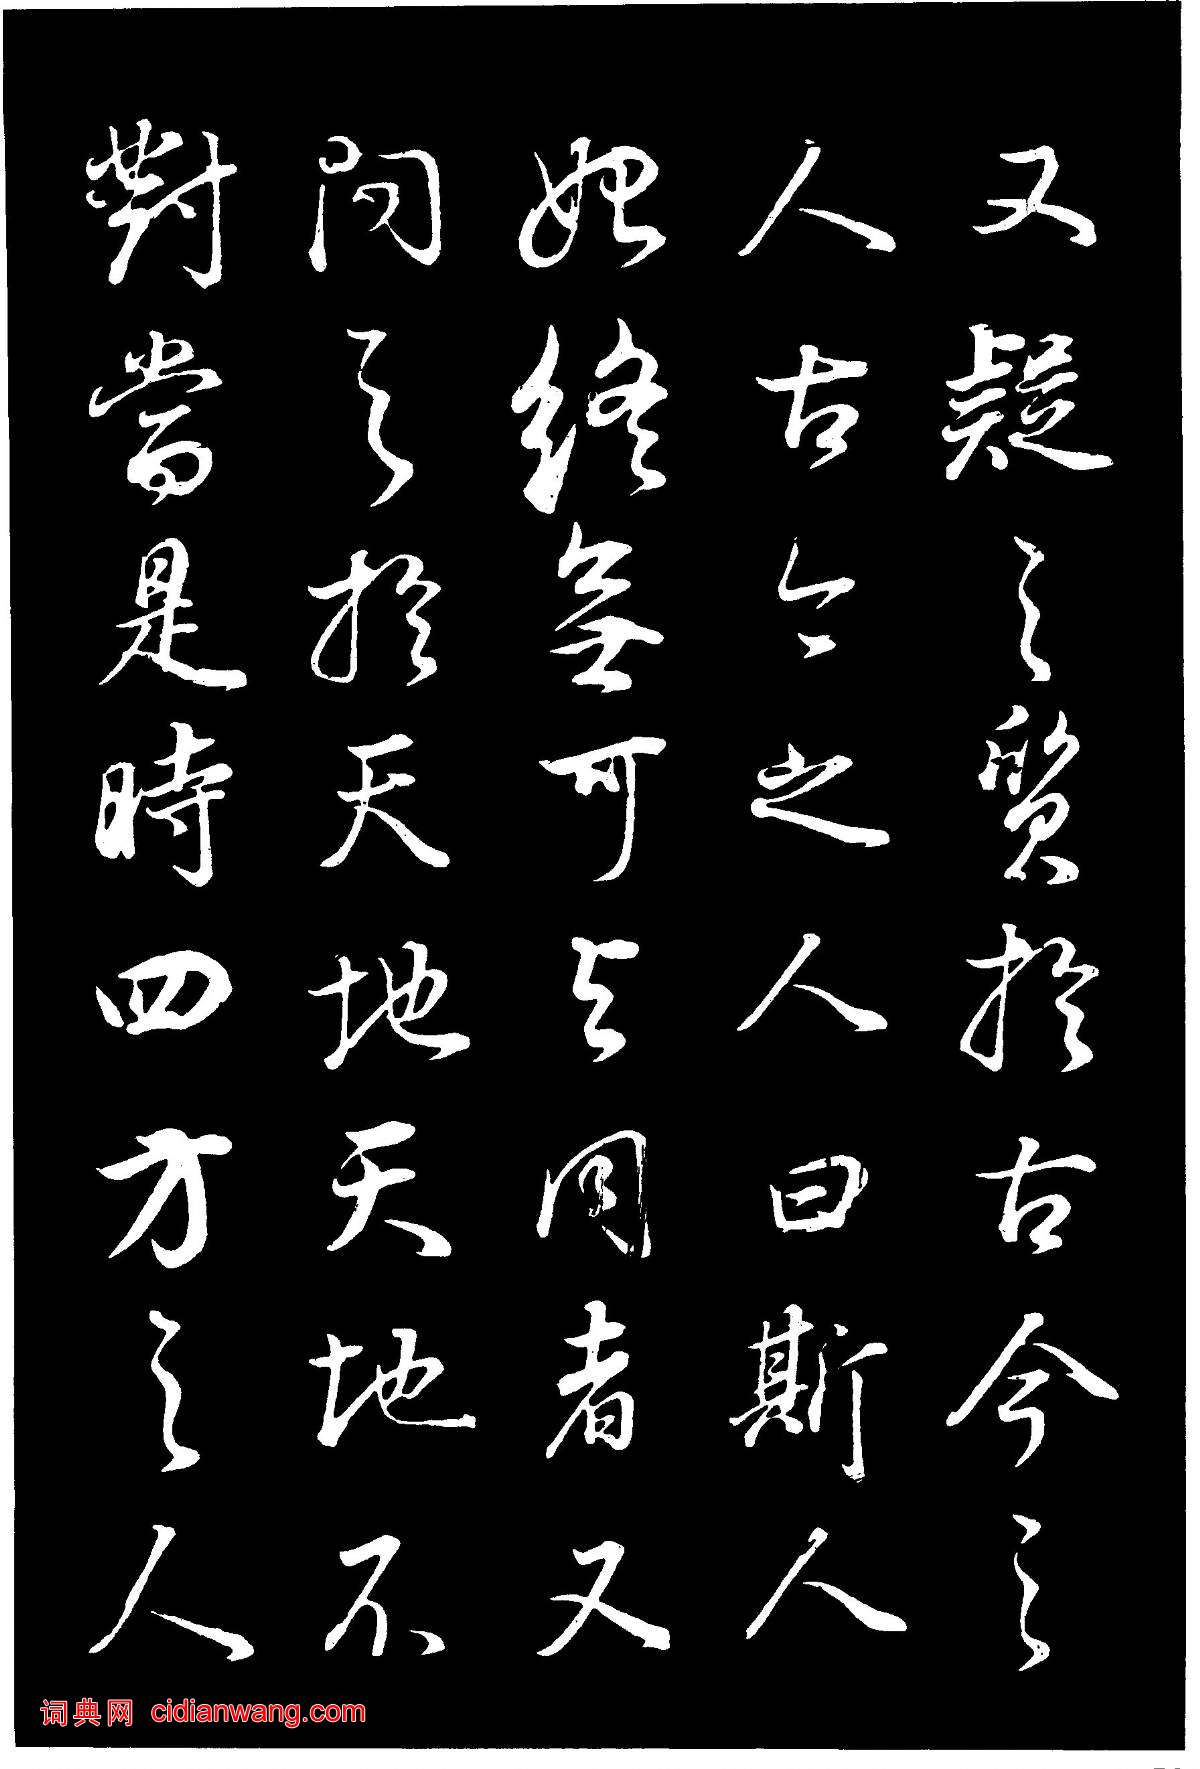 又疑之質於古今之
人古今之人曰斯人
始終無可与同者又
问之於天地天地不
對當是時四方之人
词典网 cidianwang.com